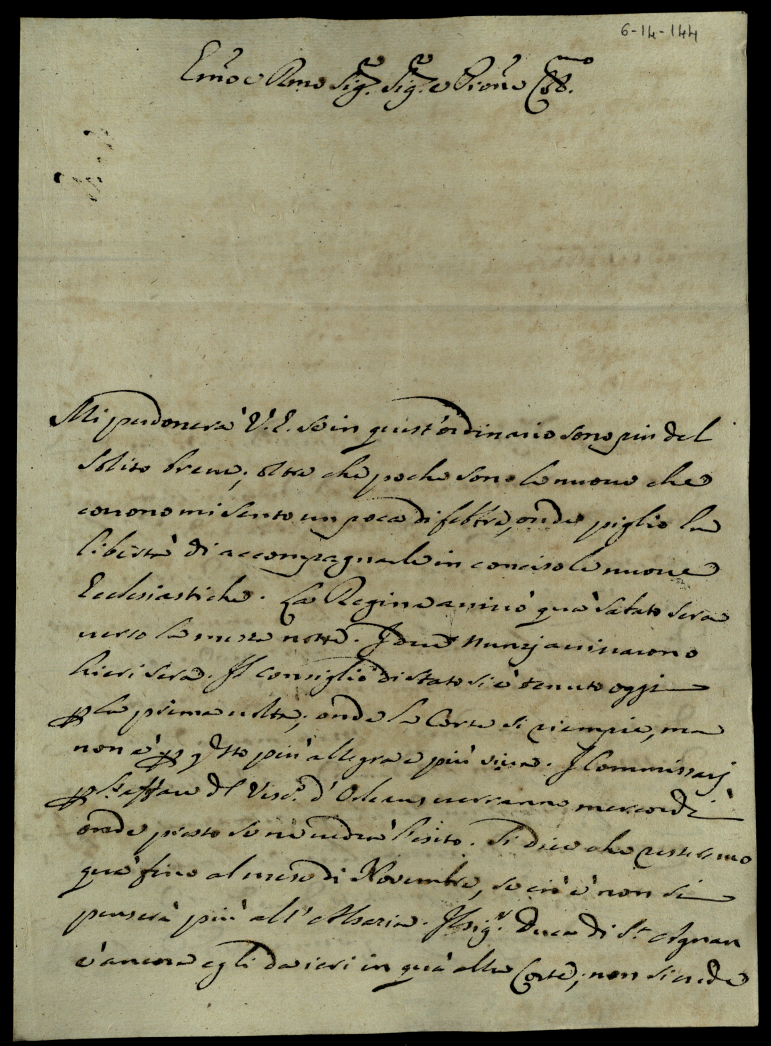 6-14-144
Em̃o e Rmo Sig.r Sig.r e Pron̄e Col.mo
Mi perdonerà V.E. se in quest'ordinario sono più del
solito breve; oltre che poche sono le nuove che
corrono mi sento un poca di febbre, onde piglio la
libertà di accompagnarle in conciso le nuove
Ecclesiastiche. La Regina arrivò quà sabato sera
verso la mezza notte. I due Nunzj arrivarono
hieri sera. Il consiglio di stato si è tenuto oggi
ꝑ la prima volta, onde la Corte si riempie, ma
non è ꝑ q̃sto più allegra e più viva. I Commissarj
ꝑ l'affare del Vesc.o d'Orleans verranno mercordì
onde presto se ne vedrà l'esito. Si dice che restaremo
quà fino al mese di Novembre, se ciò è non si
penserà più all'. Il sig.r Duca di S.t Agnan
è ancora egli da ieri in quà alla Corte; non si crede